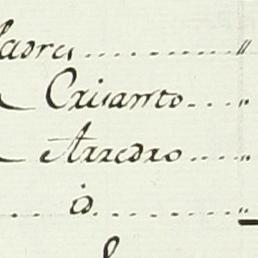 adres ........ "
Crisanto .... "
Arredro .... "
id. ........ "